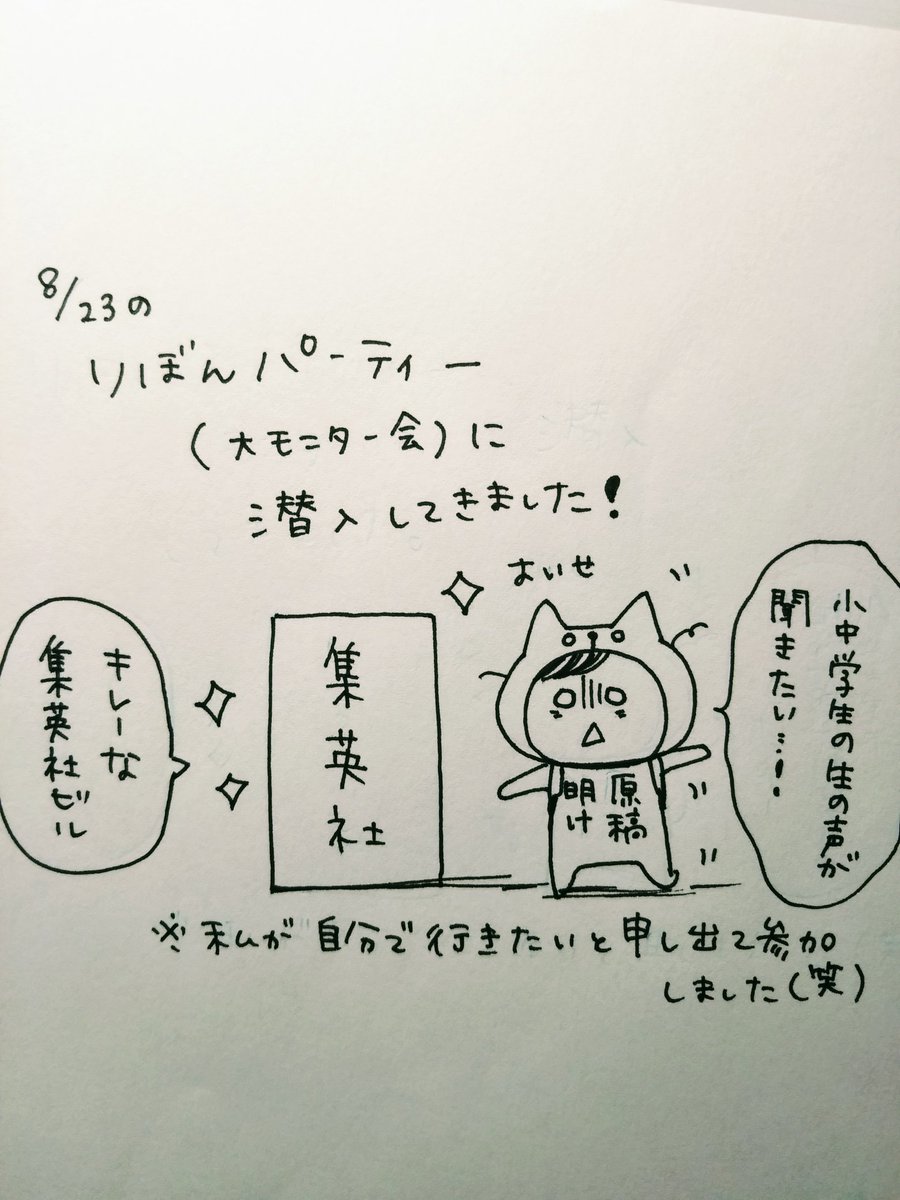 8/23の
りぼんパーティー
(大モニター会)に
潜入してきました!
キレーな
集英社ビル
集英社
よいせ
原稿
明け
小中学生の生の声が
聞きたい…!
※私が自分で行きたいと申し出て参加
しました(笑)